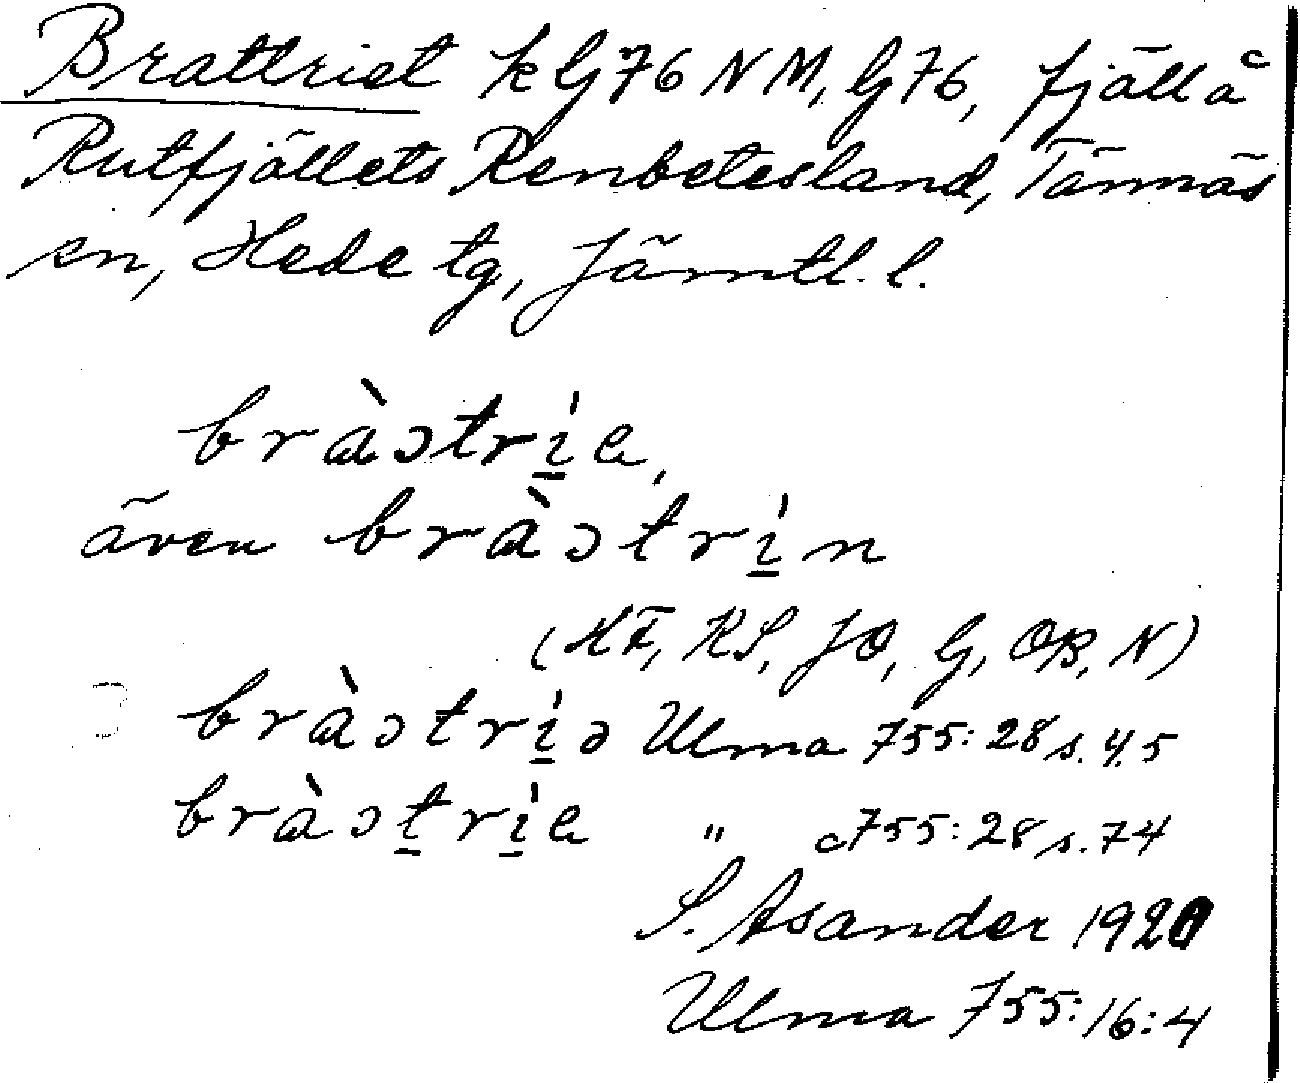 Brattriet k G76 NM, G76, fjäll å
Rutfjällets Renbetesland, Tännäs
sn, Hede tg, Jämtl. l.
bràɔtrie,
även bràɔtrin
(MF, KS, JO, G, OB, N)
bràɔtriə Ulma 755:28 s. 4, 5
bràɔtrie " 755:28 s. 74
S. Asander 1920
Ulma 755:16:4